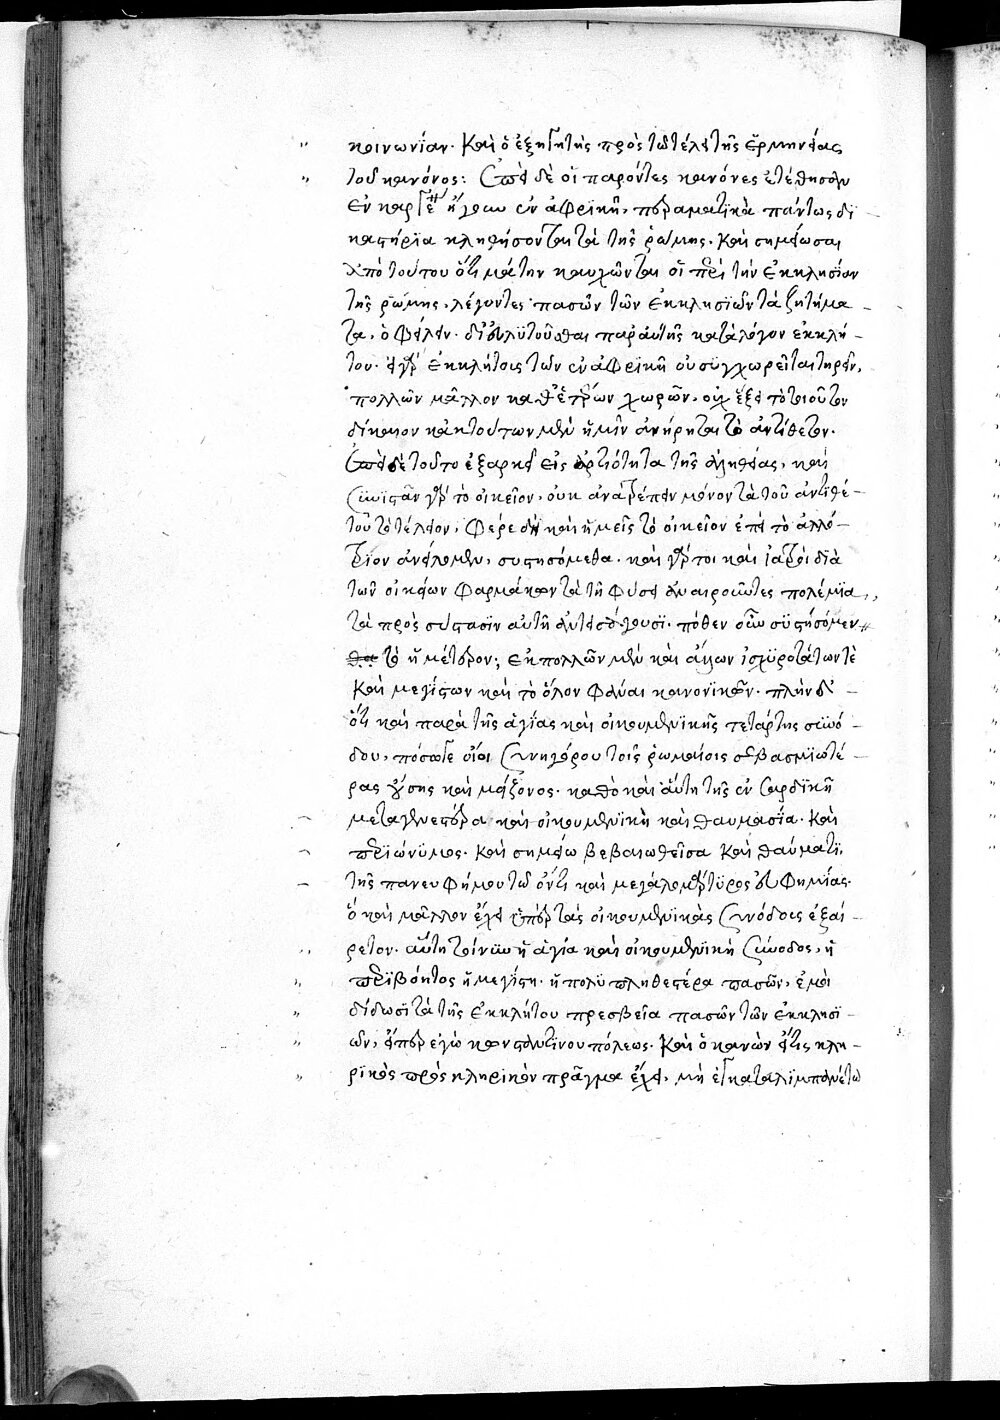 κοινωνίαν. Καὶ ὁ ἐξηγητὴς πρὸς τῶ τέλει τῆς ἑρμηνείας
τοῦ κανόνος: Ἐπεὶ δὲ οἱ παρόντες κανόνες ἐτέθησαν
ἐν ἤγουν ἐν ἀφρικῆ, πάντως δι
κα κληθήσονται τὰ τῆς ῥώμης. Καὶ σημείωσαι
ἀπὸ τούτου ὅτι μάτην καυχῶνται οἱ περὶ τὴν ἐκκλησίαν
τῆς ῥώμης, λέγοντες πασῶν τῶν ἐκκλησϊῶν τὰ ζητήμα
τα, ὀφείλειν παρ' αὐτῆς κατὰ λόγον ἐκκλή
του. εἰ γὰρ ἐκκλήτοις τῶν ἐν ἀφρϊκῆ οὐ συγχωρεῖται τηρεῖν,
πολλῶν μᾶλλον καθ' ἑτέρων χωρῶν, οὐχ ἕξει τὸ τοιοῦτον
δίκαιον κἀκ τούτων μὲν ἡμῖν ἀνήρηται τὸ ἀντίθετον.
Ἐπεὶ δὲ τοῦτο ἐξαρκεῖ εἰς ἀρτιότητα τῆς ἀληθείας, καὶ
γὰρ τὸ οἰκεῖον, οὐκ ἀνατρέπειν μόνον τὰ τοῦ ἀντιθέ
του τὸ τέλειον, φέρε δὴ καὶ ἡμεῖς τὸ οἰκεῖον ἐπεὶ τὸ ἀλλό
τριον ἀνείλομεν, συστησόμεθα. καὶ γάρ τοι καὶ ἰατροὶ διὰ
τῶν οἰκείων φαρμάκων τὰ τῆ φύσει ἀναιροῦντες πολέμϊα,
τὰ πρὸς σύστασιν αὐτῆ ἀντεισάγουσϊ. πόθεν οὖν συστησόμεν
τὸ ἡμέτερον; ἐκ πολλῶν μὲν καὶ ἄλλων ἰσχυροτάτων τὲ
καὶ μεγίστων καὶ τὸ ὅλον φάναι κανονϊκῶν. πλὴν δ'
ὅτι καὶ παρὰ τῆς ἁγίας καὶ οἰκουμενϊκῆς τετάρτης συνό
δου, πόσω γε οἴει συνηγόρου τοῖς ῥωμαίοις σεβασμϊωτέ
ρας οὔσης καὶ μείζονος. καθὸ καὶ αὕτη τῆς ἐν Σαρδϊκῆ
μεταγενεστέρα καὶ οἰκουμενϊκὴ καὶ θαυμασία. Καὶ
περϊώνϋμος. Καὶ σημείω βεβαιωθεῖσα καὶ θαύματι,
τῆς πανευφήμου τῶ ὄντι καὶ μεγαλομάρτϋρος εὐφημίας.
ὃ καὶ μᾶλλον ἔχει ὑπὲρ τὰς οἰκουμενϊκὰς συνόδους ἐξαί
ρετον. αὕτη τοίνυν ἡ ἁγία καὶ οἰκουμενϊκὴ σύνοδος, ἡ
περϊβόητος ἡ μεγίστη. ἡ πολὺ πληθεστέρα πασῶν, ἐμοὶ
δίδωσϊ τὰ τῆς ἐκκλήτου πρεσβεῖα πασῶν τῶν ἐκκλησϊ
ῶν, εἴπερ ἐγὼ κωνσταντίνου πόλεως. Καὶ ὁ κανὼν εἴ τις κλη
ρϊκὸς πρὸς κληρικὸν πρᾶγμα ἔχει, μὴ ἐγκαταλϊμπανέτω